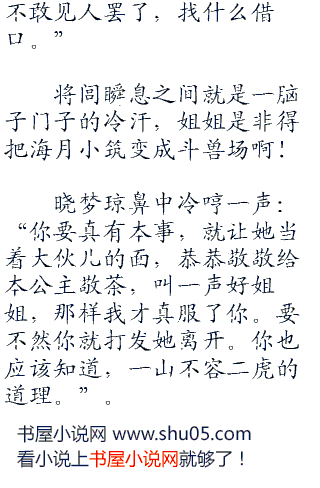 不敢见人罢了，找什么借
口。”
将闾瞬息之间就是一脑
子门子的冷汗，姐姐是非得
把海月小筑变成斗兽场啊！
晓梦琼鼻中冷哼一声：
“你要真有本事，就让她当
着大伙儿的面，恭恭敬敬给
本公主敬茶，叫一声好姐
姐，那样我才真服了你。要
不然你就打发她离开。你也
应该知道，一山不容二虎的
道理。”。
书屋小说网 www.shu05.com
看小说上书屋小说网就够了！